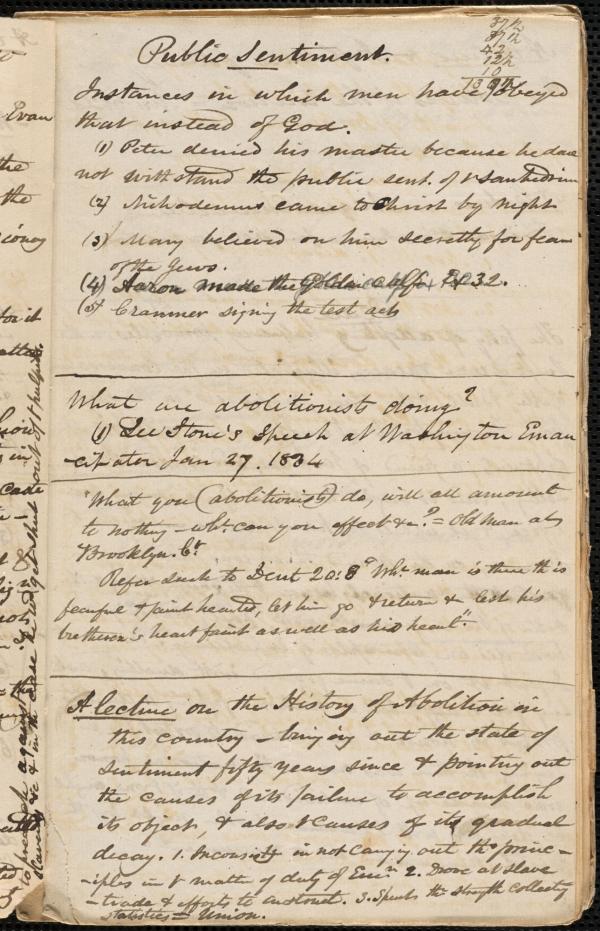 37 1/2
37 1/2
42
12 1/2
10
Public Sentiment.
Instances in which men have obeyed
that instead of God.
(1) Peter denied his master because he dare
not withstand the public sent. of t Sanhedrim
(2) Nichodemus came to Christ by night
(3) Many believed on him secretly for fear
of the Jews.
(4) Aaron made the Golden calf Ex 32.
(5) Cranmer signing the test acts
What are abolitionists doing?
(1) See Stone's Speech at Washington Eman
-cipator Jan 27. 1834
"What you (abolitionists) do, will all amount
to nothing - wht can you effect &c"? = Old man at
Brooklyn. Ct
Refer such to Deut 20:8 "Wht man is there tht is
fearful & faint hearted, let him go & return & lest his
bretheren's heart faint as well as his heart".
A lecture on the History of Abolition in
this country - bringing out the state of
sentiment fifty years since & pointing out
the causes of its failure to accomplish
its object, & also t causes of its gradual
decay. 1. Inconsisty in not carrying out tht princ-
-iples in t matter of duty of Emn 2. Drove at slave
-trade & efforts to 3. Spent tht strength collecting
statistics = Union.
Evan
the
the
to preach against
slavery &c & in tht case be wd get shut out of t pulpit.